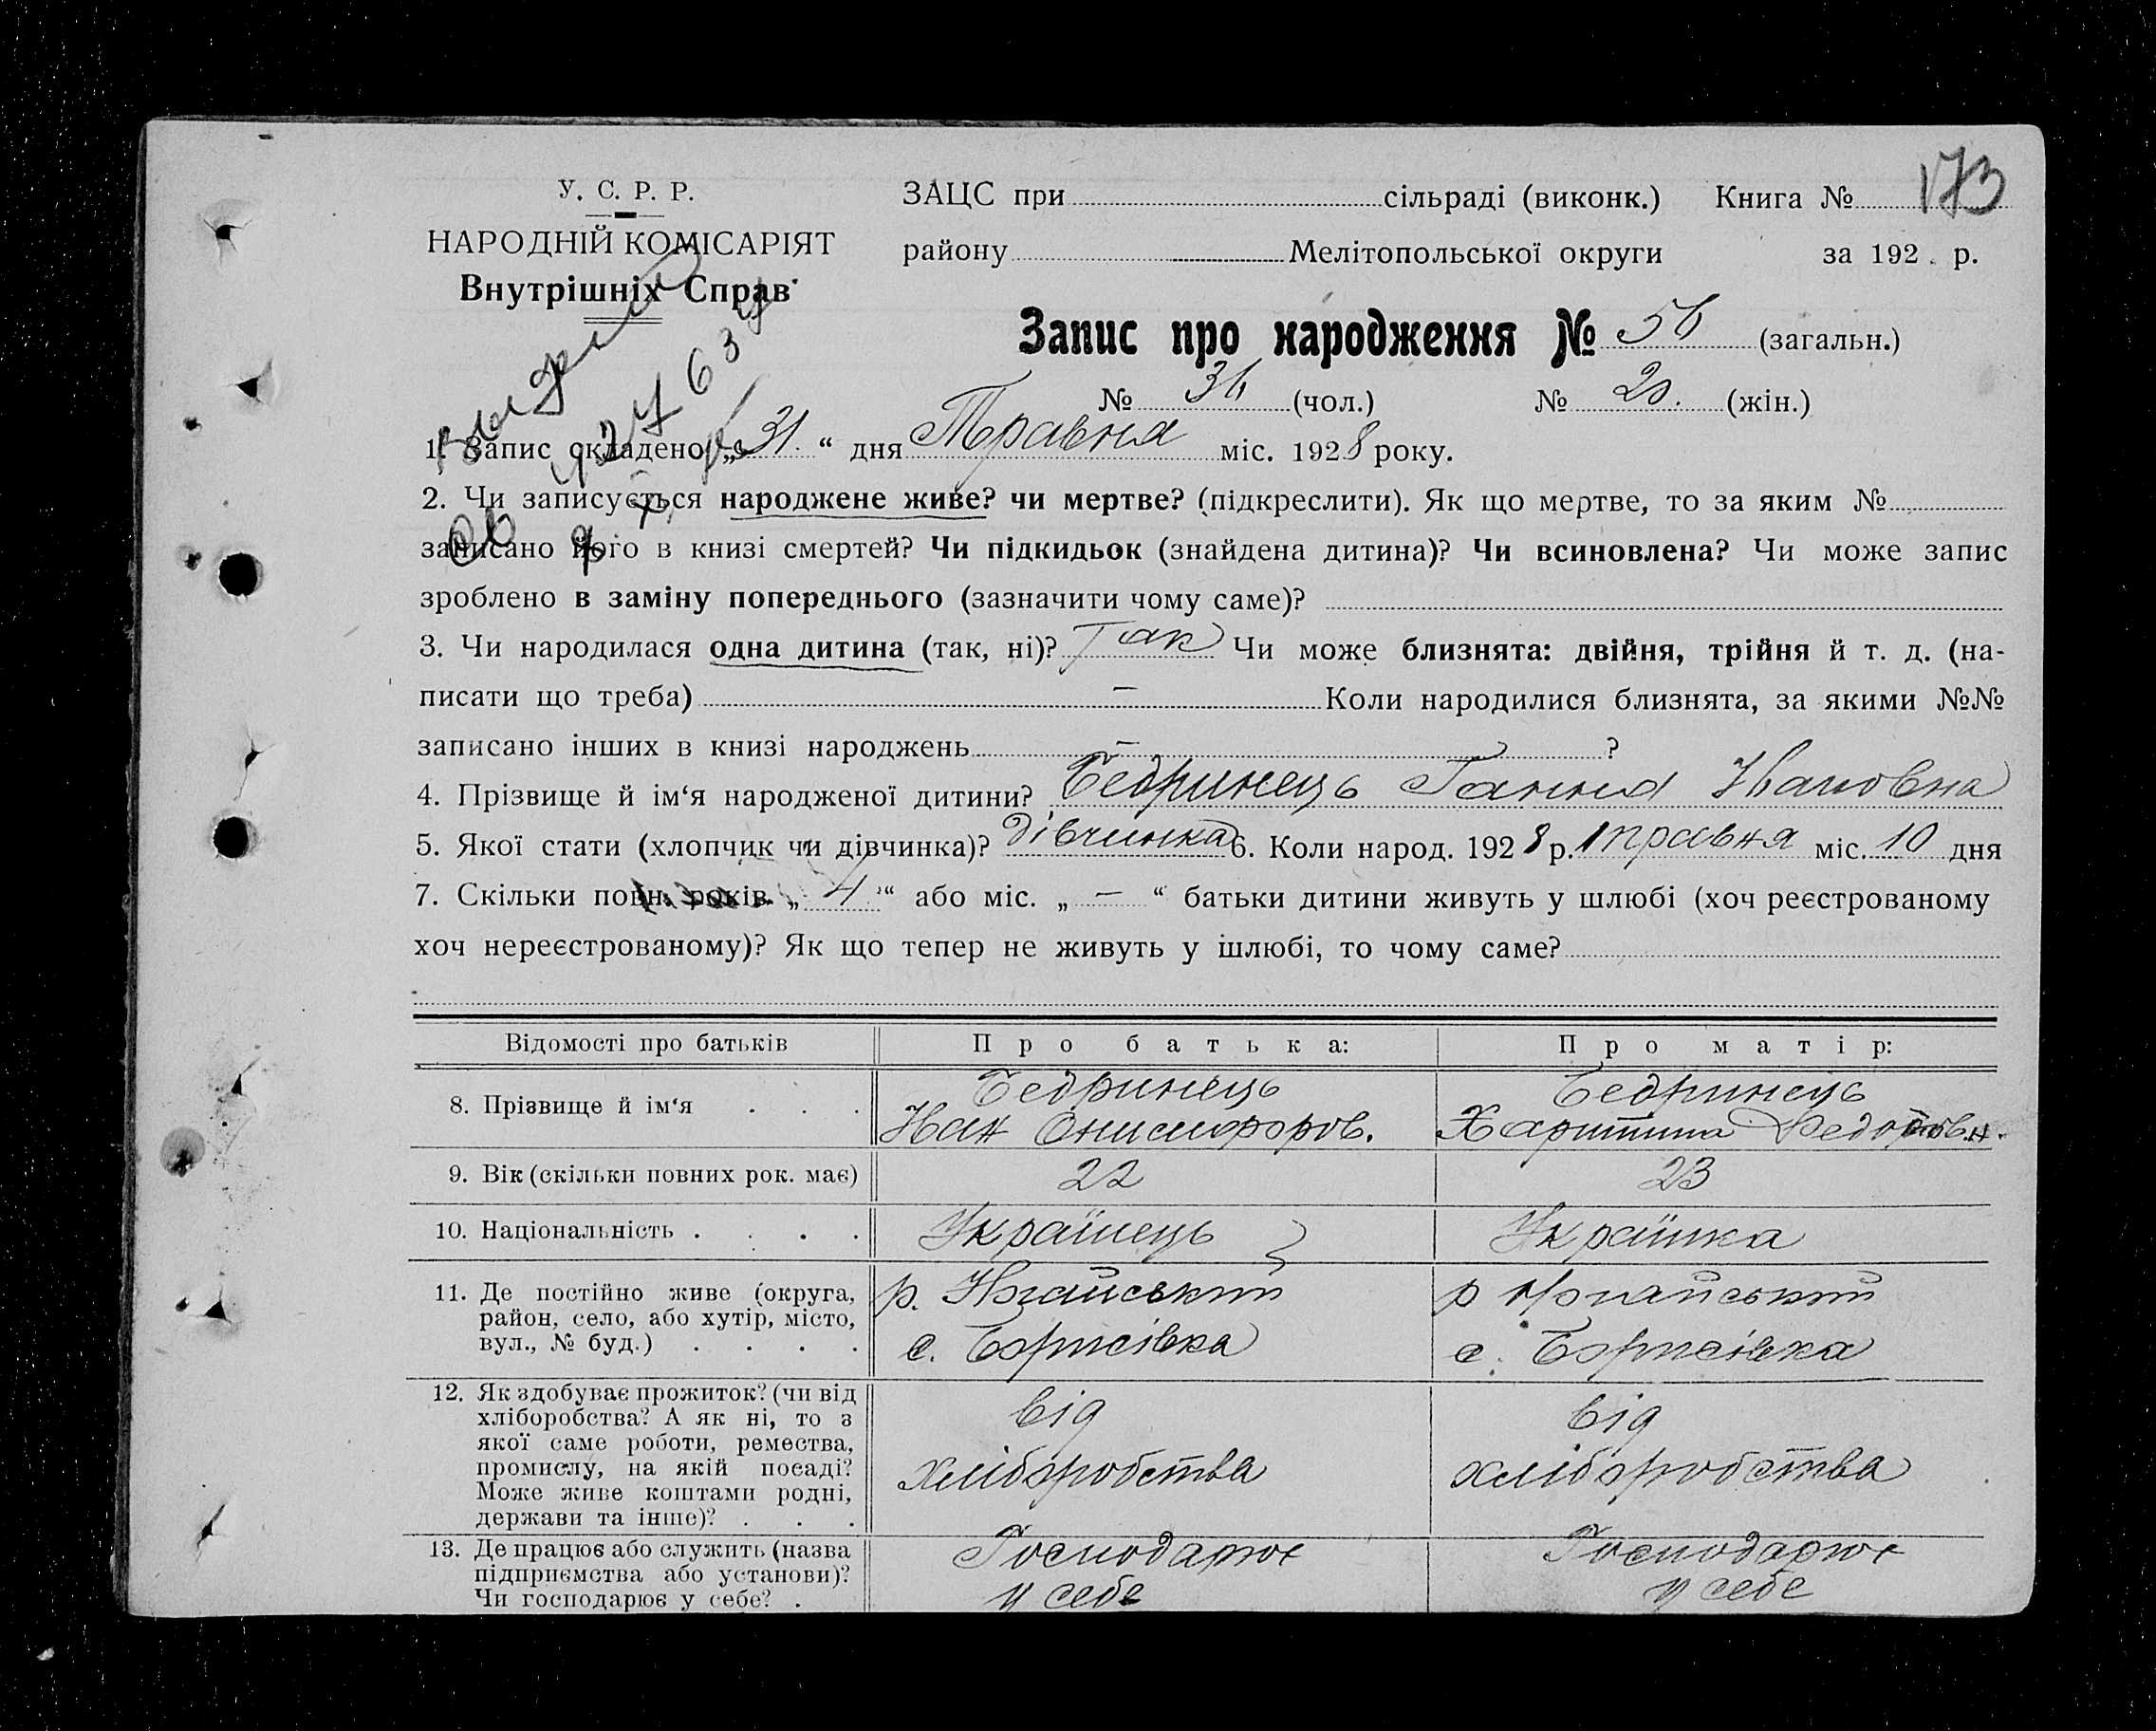 173
У. С. Р. Р.
НАРОДНІЙ КОМІСАРІЯТ
Внутрішніх Справ
ЗАЦС при сільраді (виконк.) Книга №
району Мелітопольської округи за 192 р.
Запис про народження № 56 (загальн.)
№ 36 (чол.) № 20. (жін.)
1. Запис складено „31.“ дня Травня міс. 1928 року.
2. Чи записується народжене живе? чи мертве? (підкреслити). Як що мертве, то за яким №
записано його в книзі смертей? Чи підкидьок (знайдена дитина)? Чи всиновлена? Чи може запис
зроблено в заміну попереднього (зазначити чому саме)?
3. Чи народилася одна дитина (так, ні)? Так Чи може близнята: двійня, трійня й т. д. (на-
писати що треба) — Коли народилися близнята, за якими №№
записано інших в книзі народжень — ?
4. Прізвище й ім‘я народженої дитини? Бедринець Ганна Івановна
5. Якої стати (хлопчик чи дівчинка)? дівчинка 6. Коли народ. 1928 р. травня міс. 10 дня
7. Скільки повн. років „4“ або міс. „—“ батьки дитини живуть у шлюбі (хоч реєстрованому
хоч нереєстрованому)? Як що тепер не живуть у шлюбі, то чому саме?
Відомості про батьків Про батька: Про матір:
8. Прізвище й ім‘я . . . Бедринець Бедринець
Іван Онисифоров. Харитина Федоровн.
9. Вік (скільки повних рок. має) 22 23
10. Національність . . . . Українець Українка
11. Де постійно живе (округа, р. Ногайський р Ногайський
район, село, або хутір, місто,
вул., № буд.) . . . . с. Борисівка с. Борисівка
12. Як здобуває прожиток? (чи від від від
хліборобства? А як ні, то з
якої саме роботи, ремества,
промислу, на якій посаді? хліборобства хліборобства
Може живе коштами родні,
держави та інше)? . . .
13. Де працює або служить (назва Господарює Господарює
підприємства або установи)?
Чи господарює у себе? . у себе у себе